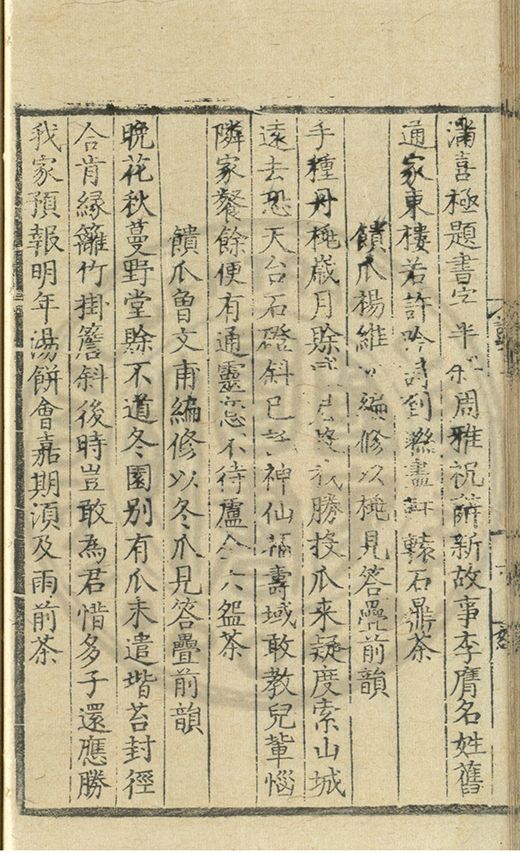 滿喜極題書字半周雅祝新故事李膺名姓舊
通家東樓若許吟詩到盡軒轅石鼎茶
饋瓜楊維編修以桃見答疊前韻
手種丹桃歲月賖我勝投瓜来疑度索山城
遠去恐天台石磴斜已神仙壽域敢教兒輩惱
隣家餐餘便有通靈意不待盧仝六盌茶
饋瓜魯文甫編修以冬瓜見答疊前韻
晚花秋蔓野堂賖不道冬園别有瓜未遣堦苔封徑
合肯縁籬竹掛簷斜後時豈敢為君惜多子還應勝
我家預報明年湯餅會嘉期湏及雨前茶